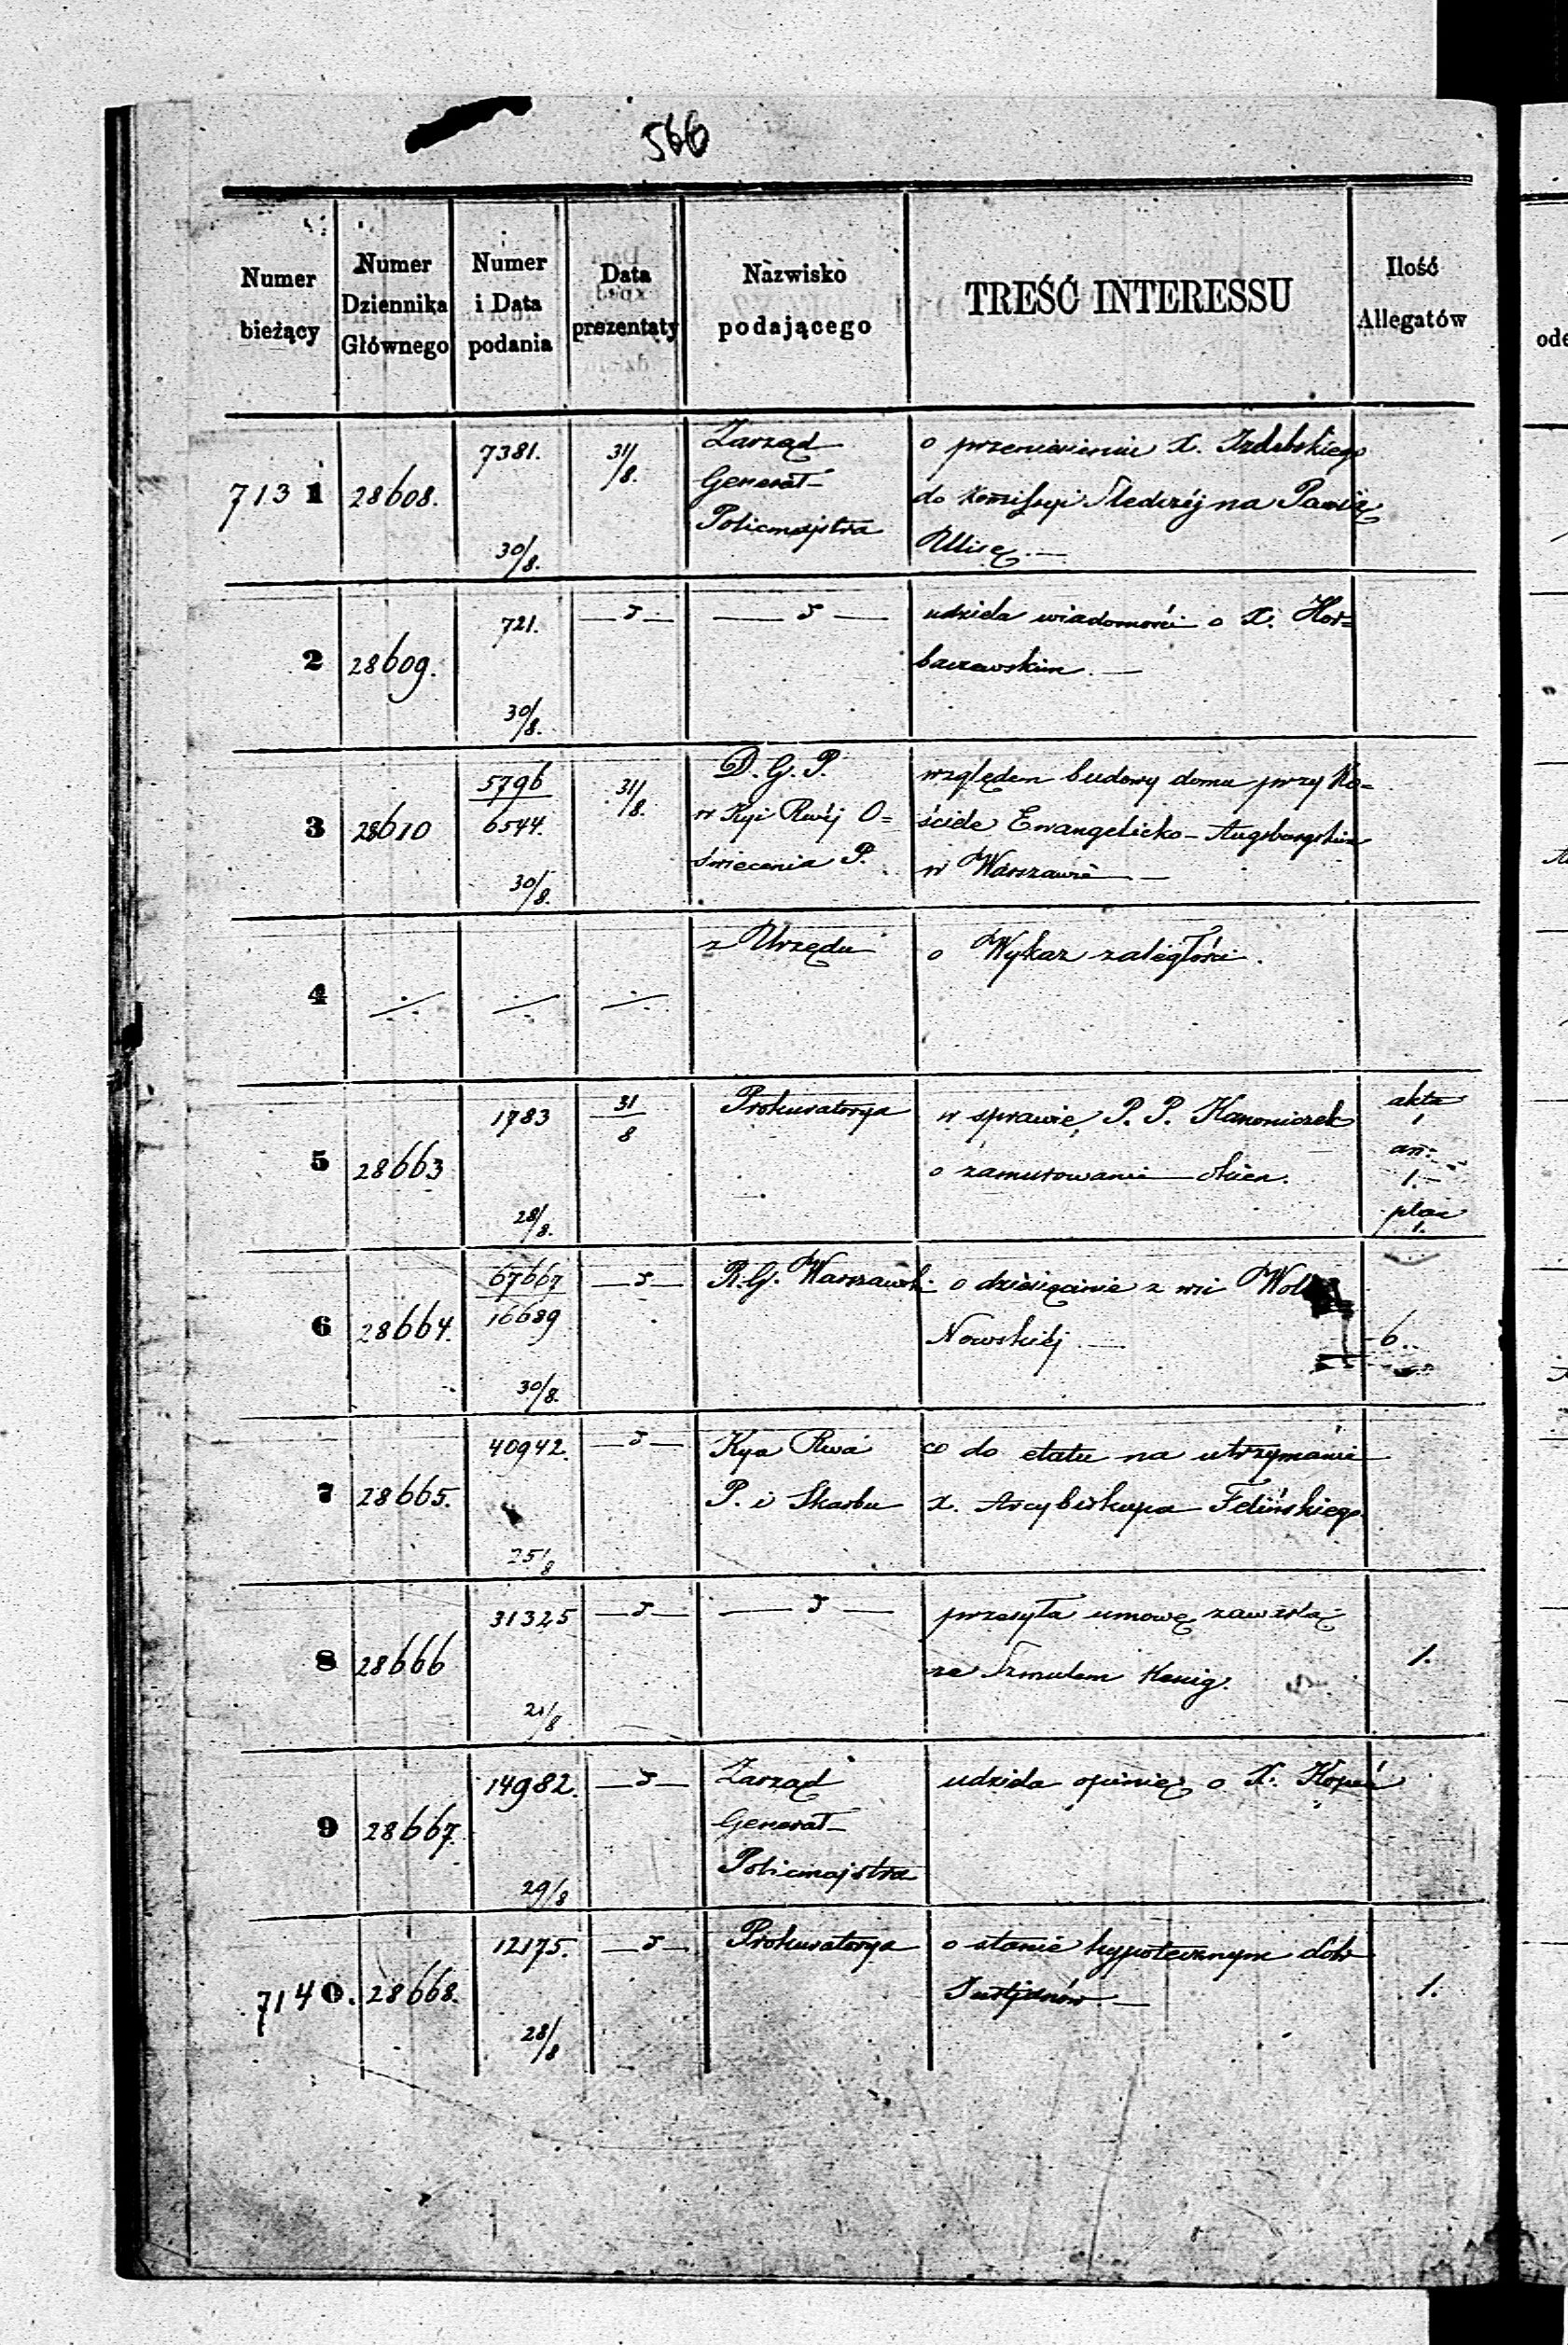 566
Numer bieżący
Numer Dziennika Głównego
Numer i Data podania
Data prezentaty
Nazwisko podającego
TREŚĆ INTERESSU
Ilość Allegatów
7131
28608.
7381.
30/8.
31/8.
Zarząd
Generał-
Policmajstra
o przeniesienie X. Izdebskiego
do Komissyi Śledczéj na Pawią
Ulicę. —
2
28609.
721.
30/8.
— δ —
— δ —
udziela wiadomości o X. Hor=
baczewskim. —
3
28610
5796
6544.
30/8.
31/8.
D. G. P.
w Kyi Rwéj O=
świecenia P.
względem budowy domu przy Ko=
ściele Ewangelicko-Augsburgskim
w Warszawie —
4
÷
÷
÷
z Urzędu
o Wykaz zaległości.
5
28663
1783
28/8.
31
8
Prokuratorya
w sprawie P. P. Kanoniczek
o zamurowanie okien.
akta
1
an:
1.-
plan
1.
6
28664.
67667
16689
30/8.
— δ —
R. G. Warszawski
o dziesięcinie z wsi Wol
Nowskiéj —
6.
7
28665.
40942.
25/8
— δ —
Kya Rwa
P. i Skarbu
co do etatu na utrzymanie
X. Arcybiskupa Felińskiego.
8
28666
31325
21/8
— δ —
— δ —
przesyła umowę zawartą
ze Szmulem Kenig.
1.
9
28667.
14982.
29/8
— δ —
Zarząd
Generał-
Policmajstra
udziela opinię o X. Kopeć
7140.
28668.
12175.
28/8
— δ —
Prokuratorya
o stanie hypotecznym dóbr
1.